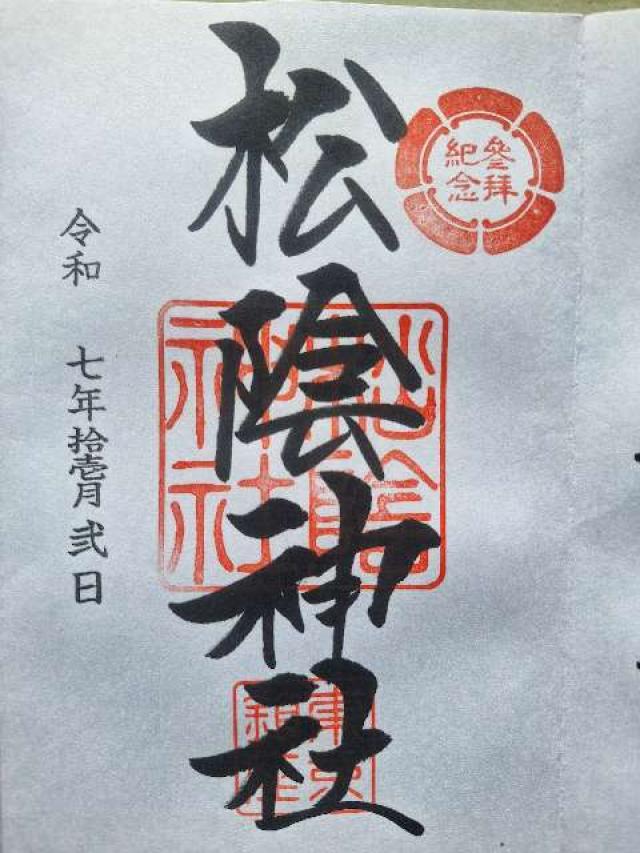 參拜
紀念
松陰神社
松陰
神社
東京
鎮座
令和 七年拾壱月弐日